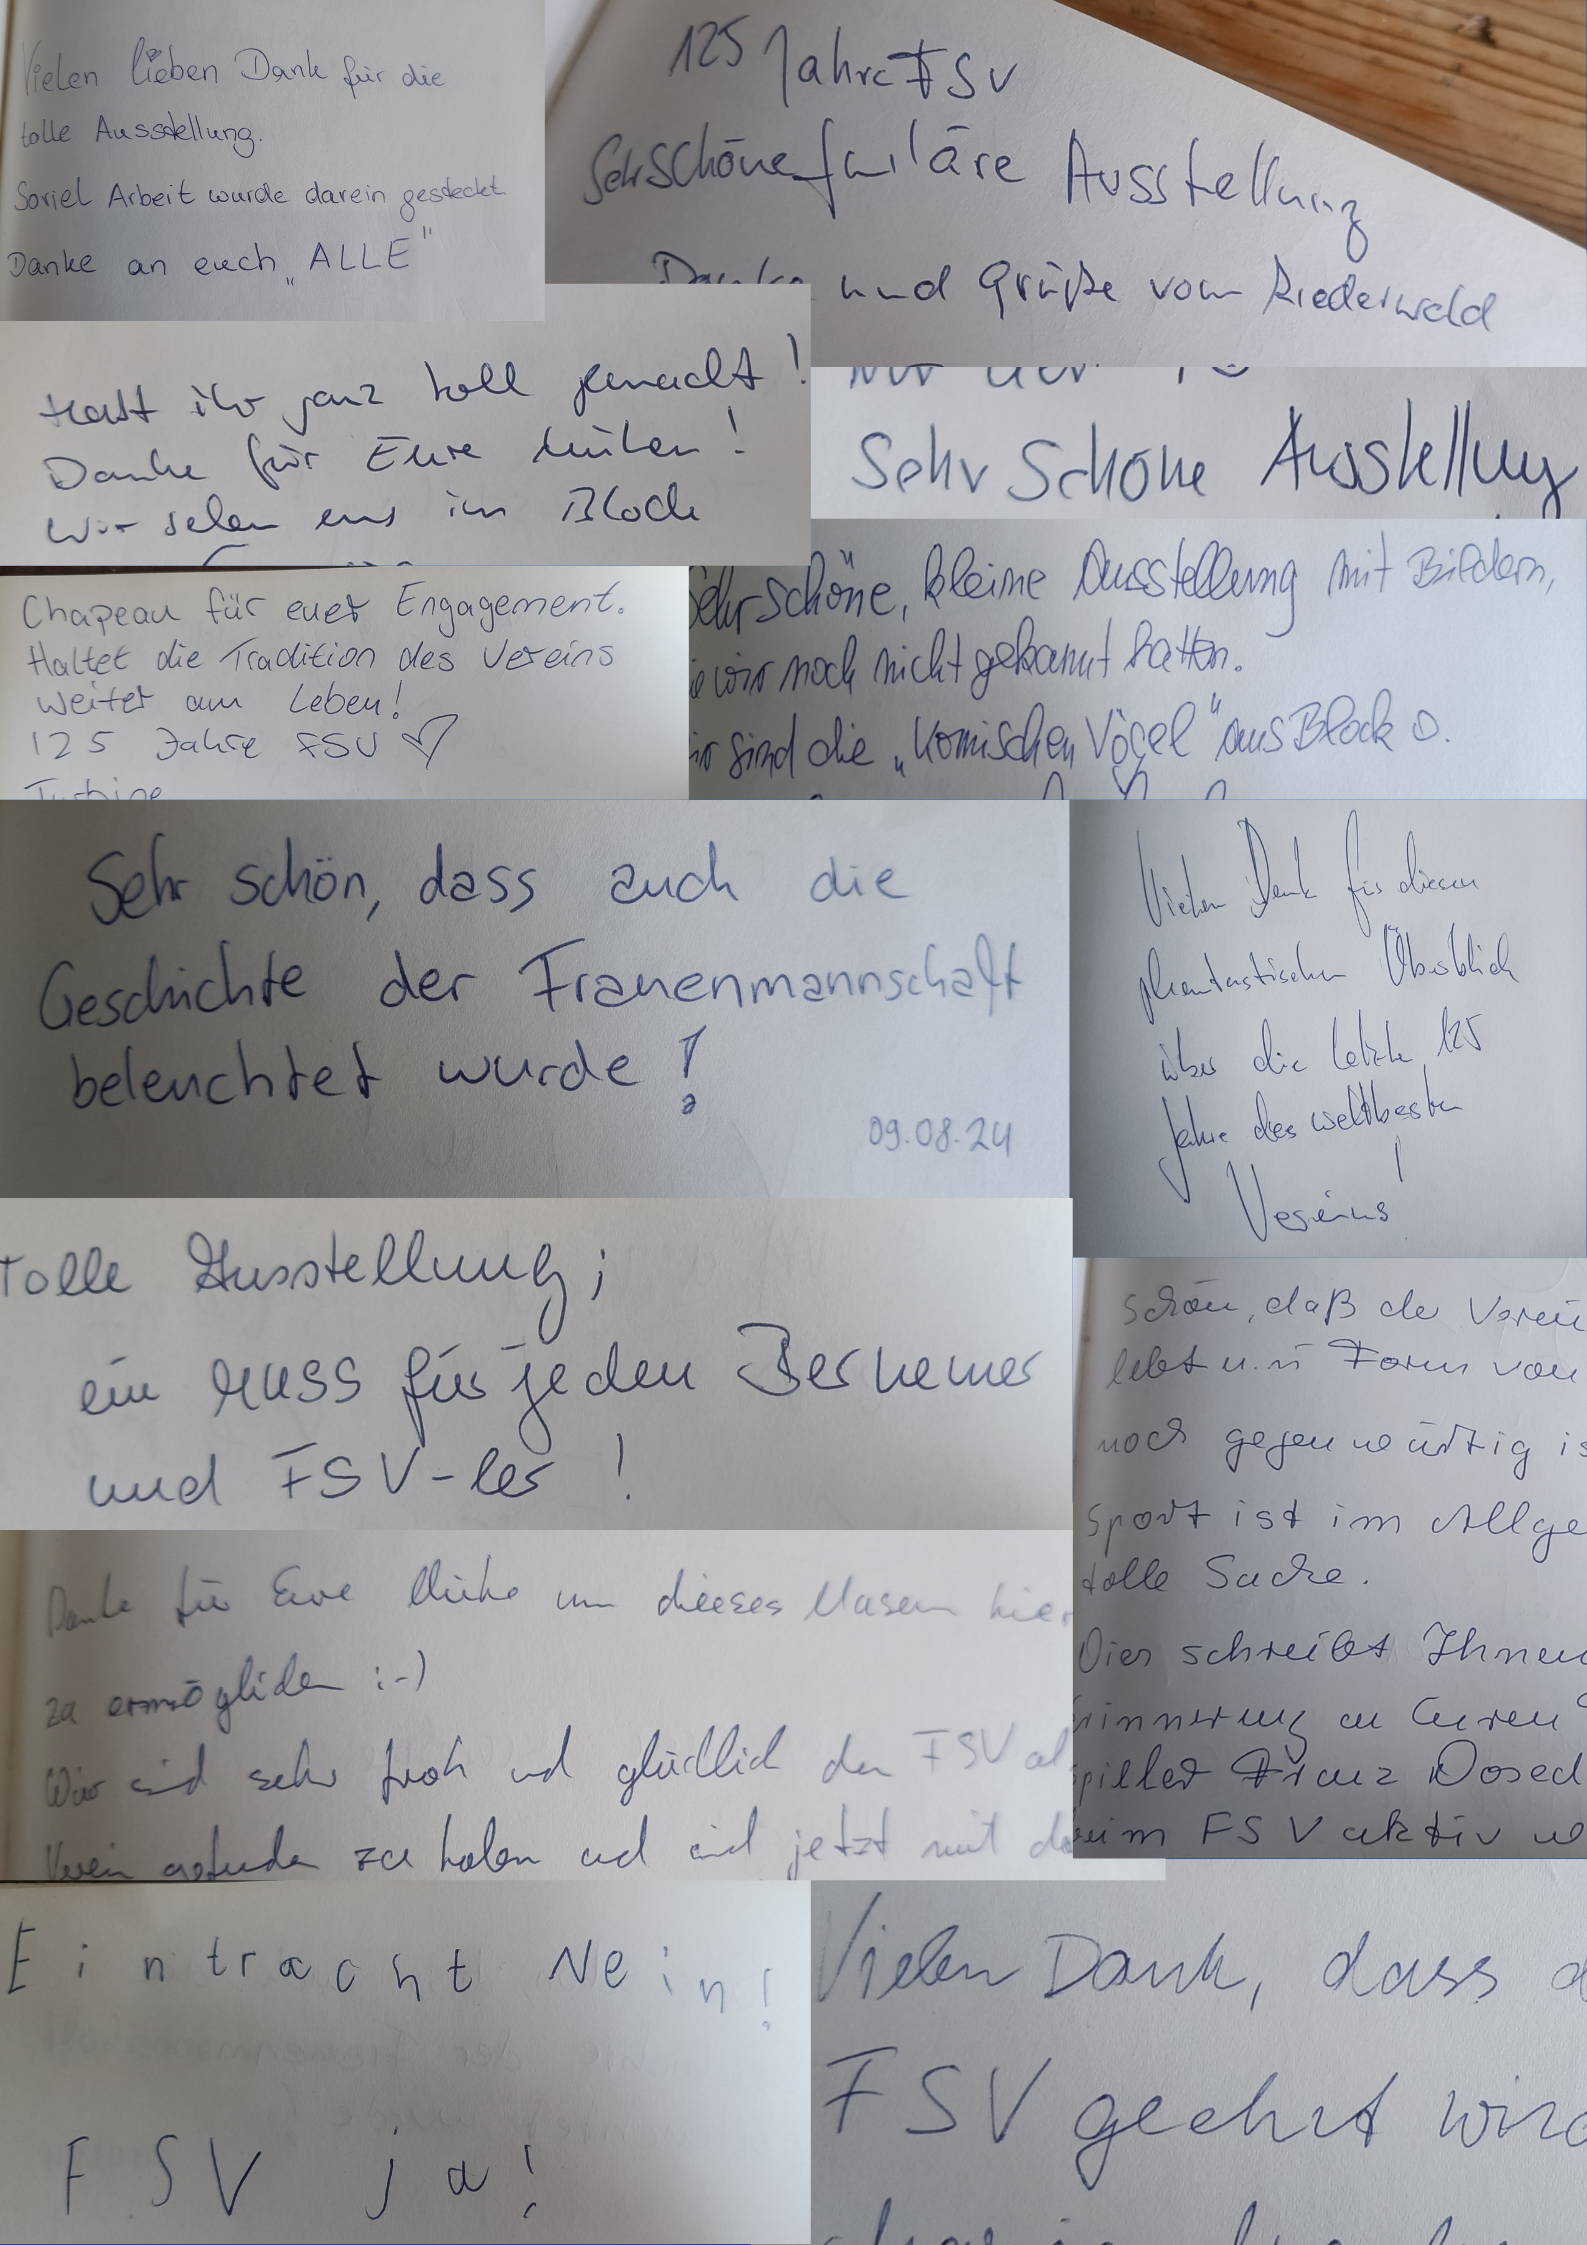 Vielen lieben Dank für die
tolle Ausstellung.
Soviel Arbeit wurde darein gesteckt
Danke an euch „ALLE"
125 Jahre FSV
Sehr schöne Ausstellung
Danke und Grüße vom Riederwald
Habt ihr ganz toll gemacht!
Danke für Eure Mühen!
Wir sehen uns im Block
Sehr Schöne Ausstellung
Chapeau für euer Engagement.
Haltet die Tradition des Vereins
weiter am Leben!
125 Jahre FSV ♡
Turbine
Sehr schöne, kleine Ausstellung mit Bildern,
die wir noch nicht gekannt hatten.
Wir sind die „Komischen Vögel" aus Block O.
Sehr schön, dass auch die
Geschichte der Frauenmannschaft
beleuchtet wurde!
09.08.24
Vielen Dank für diesen
phantastischen Überblick
über die letzte 125
Jahre des weltbesten
Vereins!
Tolle Ausstellung;
ein Muss für jeden Bernemer
und FSV-ler!
Schön, daß der Verein
lebt u. in Form von
noch gegenwärtig is
Sport ist im Allge
tolle Sache.
Dies schreibt Ihnen
Erinnerung an Euren
Spieler Franz Dosed
beim FSV aktiv
Danke für Eure Mühe um dieses Museum hier
zu ermöglichen :-)
Wir sind sehr froh und glücklich den FSV al
Verein gefunden zu haben und sind jetzt mit
Eintracht Nein!
FSV ja!
Vielen Dank, dass d
FSV geehrt wird